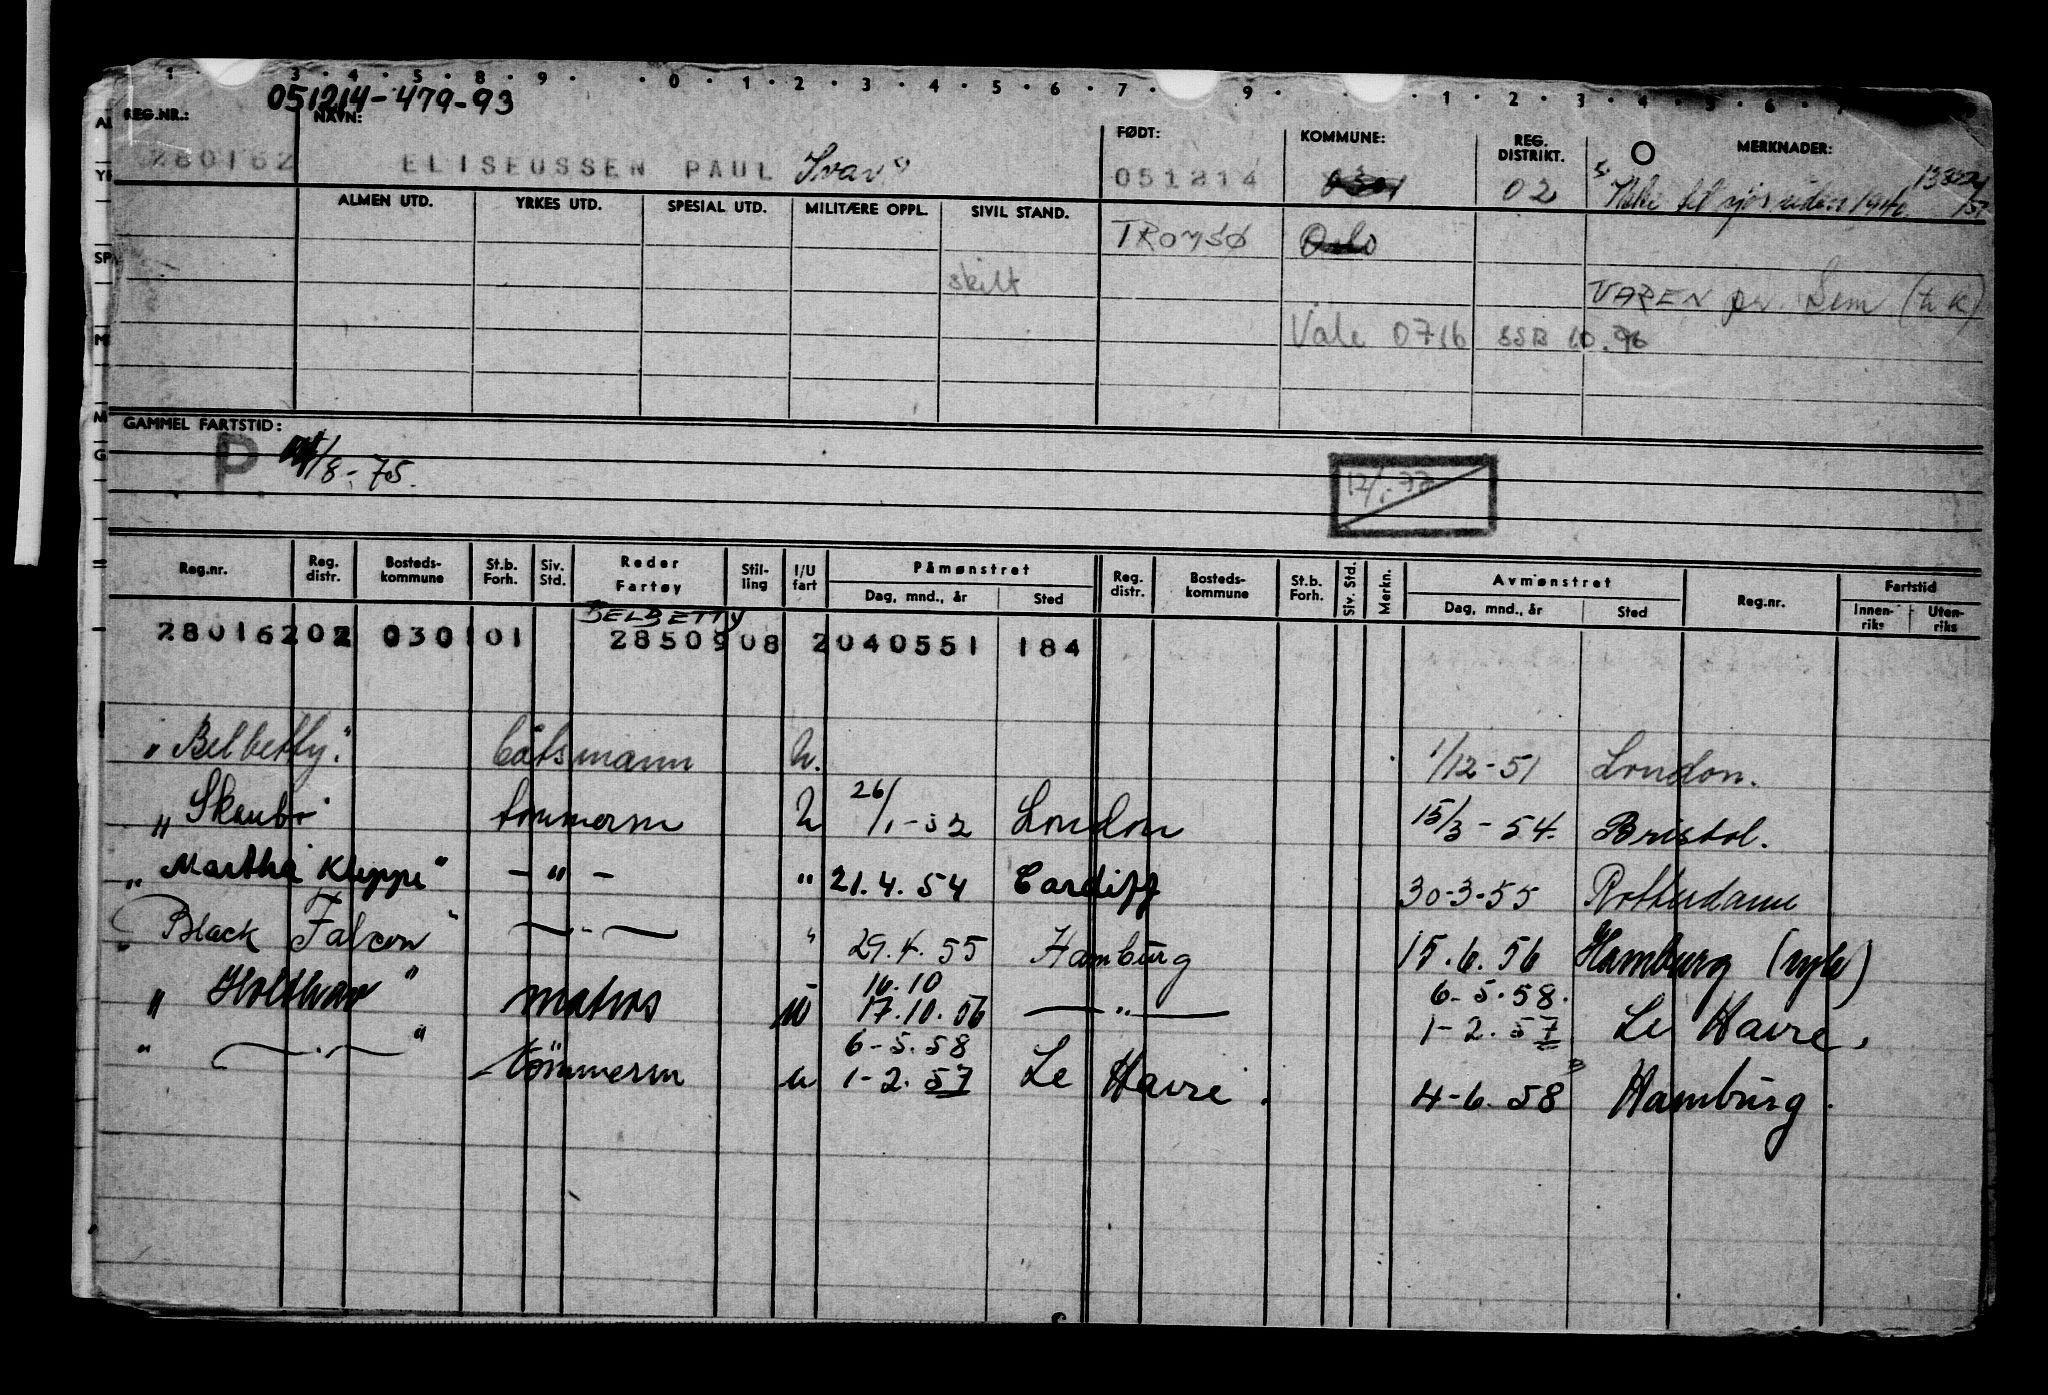 1 · 3 · 4 · 5 · 8 · 9 · 0 · 1 · 2 · 3 · 4 · 5 · 6 · 7 · 9 · 1 · 2 · 3 · 4 · 5 · 6 · 7
051214-479-93
REG.NR.: NAVN: FØDT: KOMMUNE: REG. DISTRIKT. MERKNADER:
280162 ELISEUSSEN PAUL Ivar 051214 0301 02
ALMEN UTD. YRKES UTD. SPESIAL UTD. MILITÆRE OPPL. SIVIL STAND.
TROMSØ Oslo
skilt VAREN pr. Sem (t k)
Vale 0716 SSB 10.96
GAMMEL FARTSTID:
P /8-75.
12/1-77
Reg.nr. Reg. distr. Bosteds-kommune St.b. Forh. Siv. Std. Reder Fartøy Stil-ling I/U fart Påmønstret Reg. distr. Bosteds-kommune St.b. Forh. Siv. Std. Merkn. Avmønstret Reg.nr. Fartstid
Dag, mnd., år Sted Dag, mnd., år Sted Innen-riks Uten-riks
BELBETTY
280162 02 0301 01 2850908 2 040551 184
"Belbetty". båtsmann u. 1/12-51 London.
"Skaubo" tømmerm u 26/1-52 London 15/3-54. Bristol.
"Martha Kleppe" - " - " 21.4.54 Cardiff 30-3-55 Rotterdam
"Black Falcon" - " - " 29.4.55 Hamburg 15.6.56 Hamburg
16.10 6-5.58.
"Holthav" matros u 17.10.56 - " - 1-2.57 Le Havre.
6-5.58
" - " - " tömmerm u 1-2.57 Le Havre. 4-6.58 Hamburg.